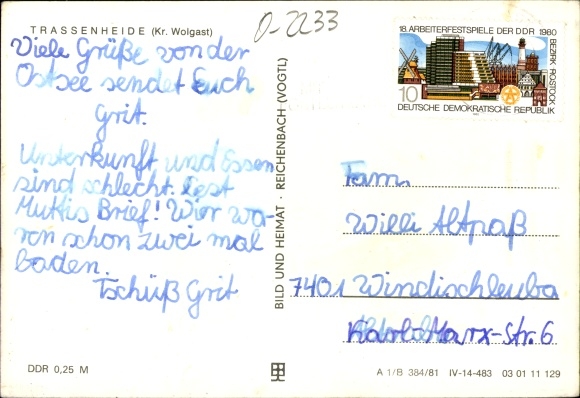 TRASSENHEIDE (Kr. Wolgast)
O-2233
Viele Grüße von der
Ostsee sendet Euch
Grit.
Unterkunft und Essen
sind schlecht. Lest
Muttis Brief! Wir wa-
ren schon zwei mal
baden.
Tschüß Grit
DDR 0,25 M
BILD UND HEIMAT · REICHENBACH (VOGTL)
18. ARBEITERFESTSPIELE DER DDR 1980
BEZIRK ROSTOCK
10
DEUTSCHE DEMOKRATISCHE REPUBLIK
Fam.
Willi Altpaß
7401 Windischleuba
Karl-Marx-Str. 6
A 1/B 384/81 IV-14-483 03 01 11 129